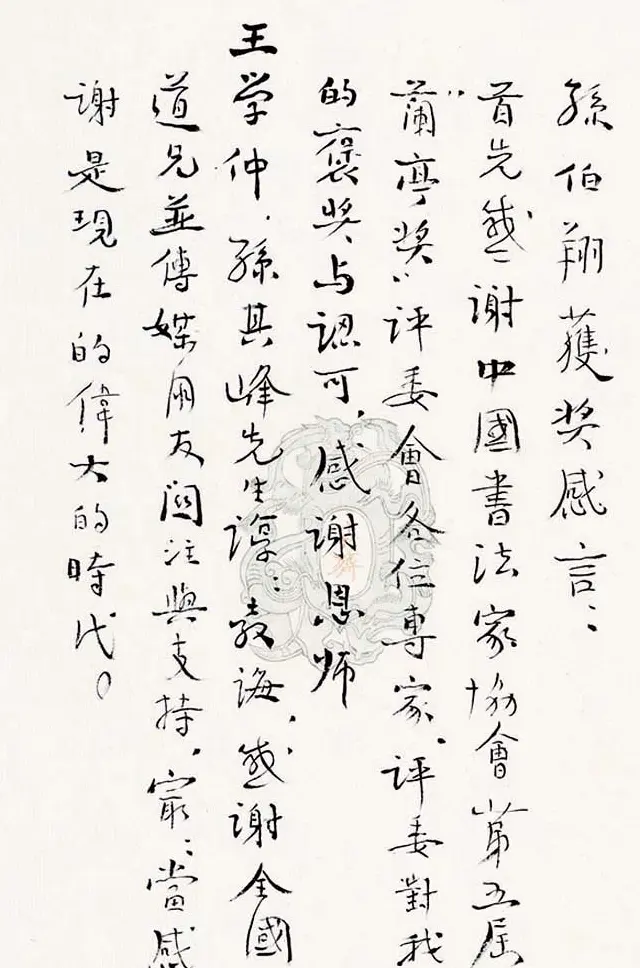 孫伯翔獲奖感言：
首先感謝中國書法家協會第五届
"蘭亭奖"評委會各位專家、評委對我
的褒奖与認可，感謝恩师
王学仲、孫其峰先生諄：教誨，感謝全國
道兄並傳媒朋友関注與支持，最：當感
謝是現在的偉大的時代。